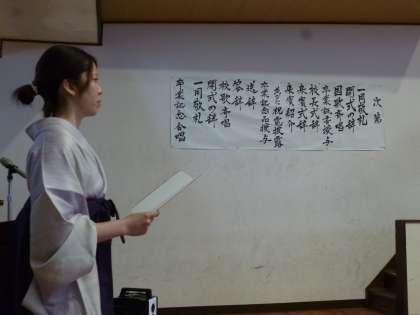 次第
一同敬礼
開式の辞
国歌斉唱
卒業証書授与
校長式辞
来賓式辞
来賓紹介
卒業記念品授与
送辞
答辞
校歌斉唱
閉式の辞
一同敬礼
卒業記念合唱